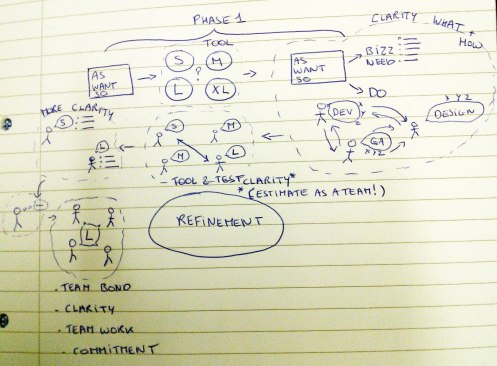 PHASE 1
CLARITY WHAT + HOW
TOOL
S
M
?
L
XL
AS
WANT
SO
AS
WANT
SO
BIZZ
NEED:
DO
DEV
X
Y
Z
QA
XYZ
XYZ
DESIGN
MORE CLARITY
S
L
S
M
M
L
- TOOL 2 TEST CLARITY*
*(ESTIMATE AS A TEAM!)
REFINEMENT
L
- TEAM BOND
- CLARITY
- TEAM WORK
- COMMITMENT